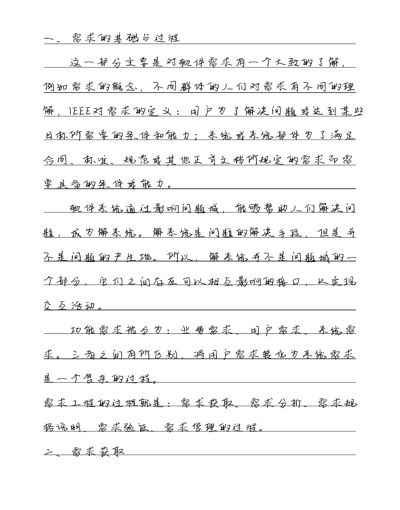 一、需求的基础与过程
这一部分主要是对软件需求有一个大致的了解，
例如需求的概念，不同群体的人们对需求有不同的理
解，IEEE对需求的定义：用户为了解决问题或达到某些
目标所需要的条件和能力；系统或系统部件为了满足
合同、标准、规范或其他正式文档所规定的需求而需
要具备的条件或能力。
软件系统通过影响问题域，能够帮助人们解决问
题，成为解系统。解系统是问题的解决手段，但是并
不是问题的产生地。所以，解系统并不是问题域的一
个部分，它们之间存在可以相互影响的接口，以实现
交互活动。
功能需求被分为：业务需求、用户需求、系统需
求。三者之间有所区别，将用户需求转化为系统需求
是一个复杂的过程。
需求工程的过程就是：需求获取、需求分析、需求规
格说明、需求验证、需求管理的过程。
二、需求获取